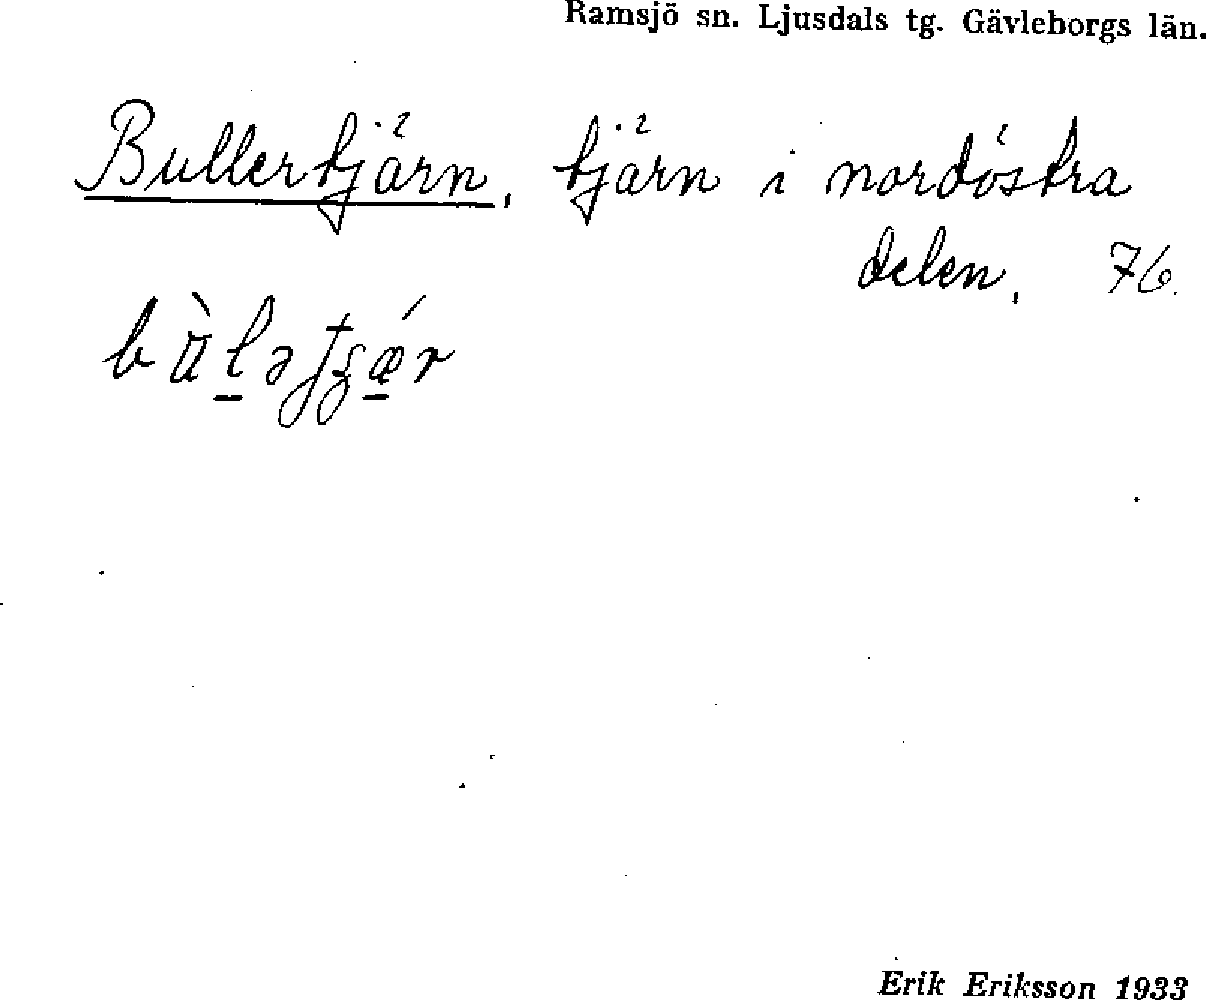 Ramsjö sn. Ljusdals tg. Gävleborgs län.
Bullertjärn, tjärn i nordöstra
delen, 76.
Erik Eriksson 1933